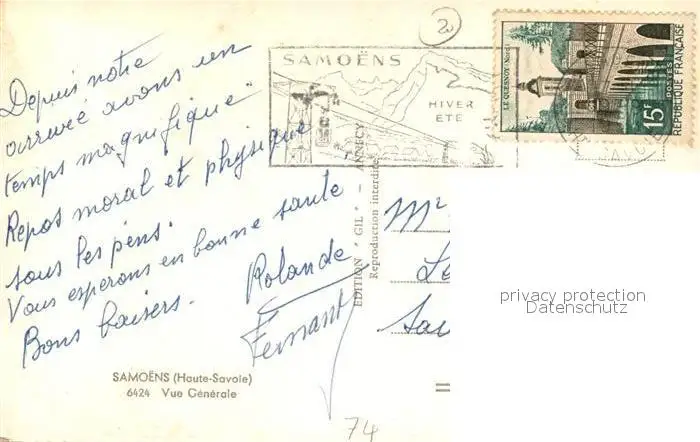 2
Depuis notre
arrivée avons un
temps magnifique.
Repos moral et physique
sous les pins.
Vous esperons en bonne sante
Bons baisers. Rolande
Fernant
SAMOËNS (Haute-Savoie)
6424 Vue Générale
74
SAMOËNS
HIVER
ETE
EDITION "GIL" - ANNECY
Reproduction interdite
LE QUESNOY (Nord)
15F
POSTES
REPUBLIQUE FRANÇAISE
Mr
privacy protection
Datenschutz